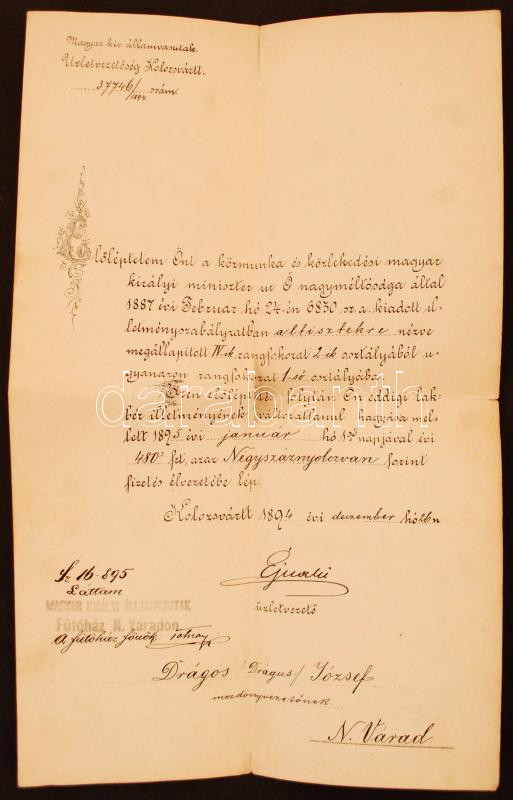 Magyar kir. államvasutak.
Üzletvezetőség Kolozsvártt.
37746/1894 szám.
Előléptetem Önt a közmunka és közlekedési magyar
királyi miniszter ur Ő nagyméltósága által
1887 évi Februar hó 24-én 6830 sz. a. kiadott il-
letményszabályzatban altisztekre nézve
megállapitott IV-ik rangfokozat 2-ik osztályából u-
gyanazon rangfokozat 1-ső osztályába.
Ezen előléptetés folytán Ön eddigi lak-
bér illetményének változatlanul hagyása mel-
lett 1895 évi január hó 1ső napjával évi
480 frt, azaz Négyszáznyolcvan forint
fizetés élvezetébe lép.
Kolozsvártt 1894 évi dezember hó 26n
16 895
Láttam
üzletvezető
MAGYAR KIRÁLYI ÁLLAMVASUTAK
Fűtőház N. Váradon
A fűtőház főnök
Drágos /Drágus/ József
mozdonyvezetőnek.
N. Várad
darabanth